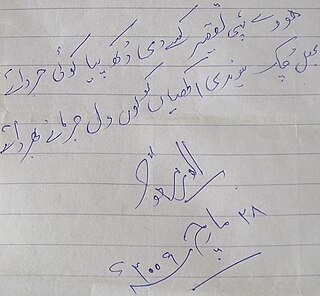 ھووے پئی تقصیر کسے دی دُکھ پیا کوئی جردا اے
بھل چُک ہوندی اکھیاں کولوں دل جرمانے بھردا اے
۲۸ مارچ
۲۰۰۹ء